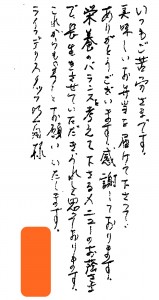 いつもご苦労さまです。
美味しいお弁当を届けて下さって
ありがとうございます。感謝しております。
栄養のバランスを考えて下さるメニューのお蔭さま
で、長生きさせていただきうれしく思っております。
これからもよろしくお願いいたします。
ライフデリスタッフの皆様